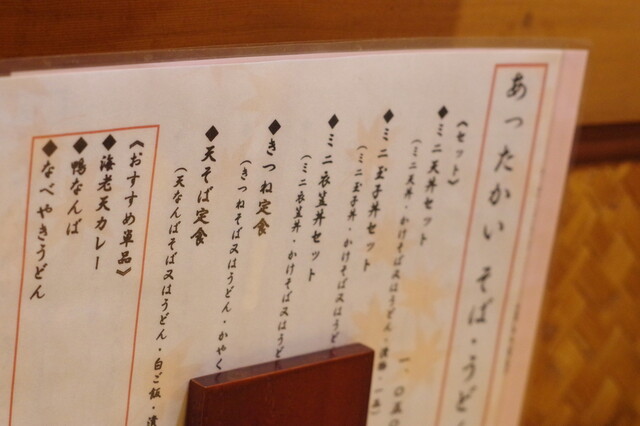 あったかい そば・うどん
《セット》
◆ミニ天丼セット
(ミニ天丼・かけそば又はうどん・漬物・一品)
◆ミニ玉子丼セット
(ミニ玉子丼・かけそば又はうど
◆ミニ衣笠丼セット
(ミニ衣笠丼・かけそば又はうど
◆きつね定食
(きつねそば又はうどん・かやく
◆天そば定食
(天なんばそば又はうどん・白ご飯・漬
《おすすめ単品》
◆海老天カレー
◆鴨なんば
◆なべやきうどん